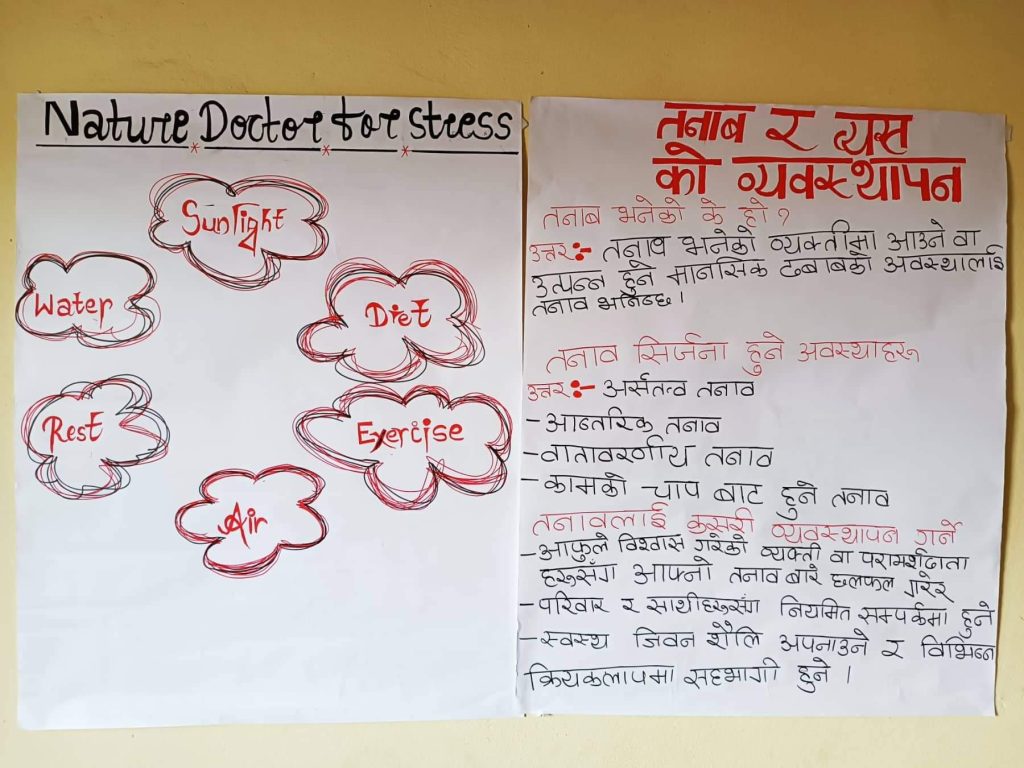 Nature Doctor for stress
Sunlight
Water
Diet
Rest
Exertise
Air
तनाब र त्यस
को व्यवस्थापन
तनाब भनेको के हो ?
उत्तर :- तनाव भनेको व्यक्तीमा आउने वा
उत्पन्न हुने मानसिक दब्बाबको अवस्थालाई
तनाव भनिन्छ ।
तनाव सिर्जना हुने अवस्थाहरू
उत्तर :- अर्सतत्व तनाव
- आन्तरिक तनाव
- वातावरणीय तनाव
- कामको चाप बाट हुने तनाव
तनावलाई कसरी व्यवस्थापन गर्ने
- आफुले विश्वास गरेको व्यक्ती वा परामर्शदाता
हरूसँग आफ्नो तनाव बारे छलफल गरेर
- परिवार र साथीहरूसंग नियमित सम्पर्कमा हुने
- स्वस्थ जिवन शैलि अपनाउने र विभिन्न
क्रियकलापमा सहभागी हुने ।